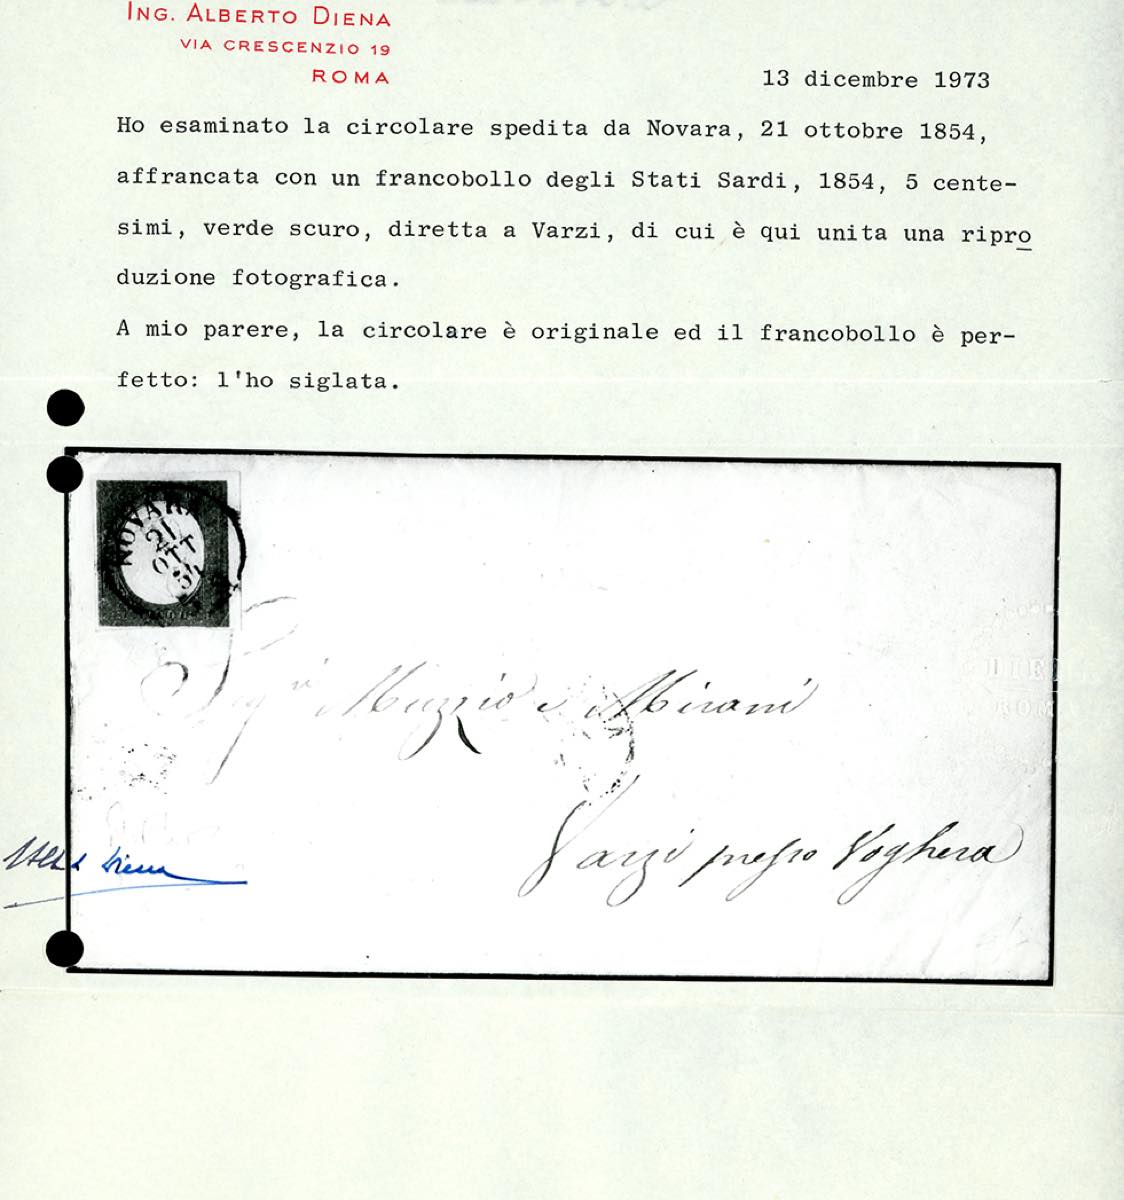 ING. ALBERTO DIENA
VIA CRESCENZIO 19
ROMA
13 dicembre 1973
Ho esaminato la circolare spedita da Novara, 21 ottobre 1854,
affrancata con un francobollo degli Stati Sardi, 1854, 5 cente-
simi, verde scuro, diretta a Varzi, di cui è qui unita una ripro
duzione fotografica.
A mio parere, la circolare è originale ed il francobollo è per-
fetto: l'ho siglata.
NOVARA
21
OTT
54
Sigri Muzzio e Mirani
Varzi presso Voghera
DIEN
ROM
Diena